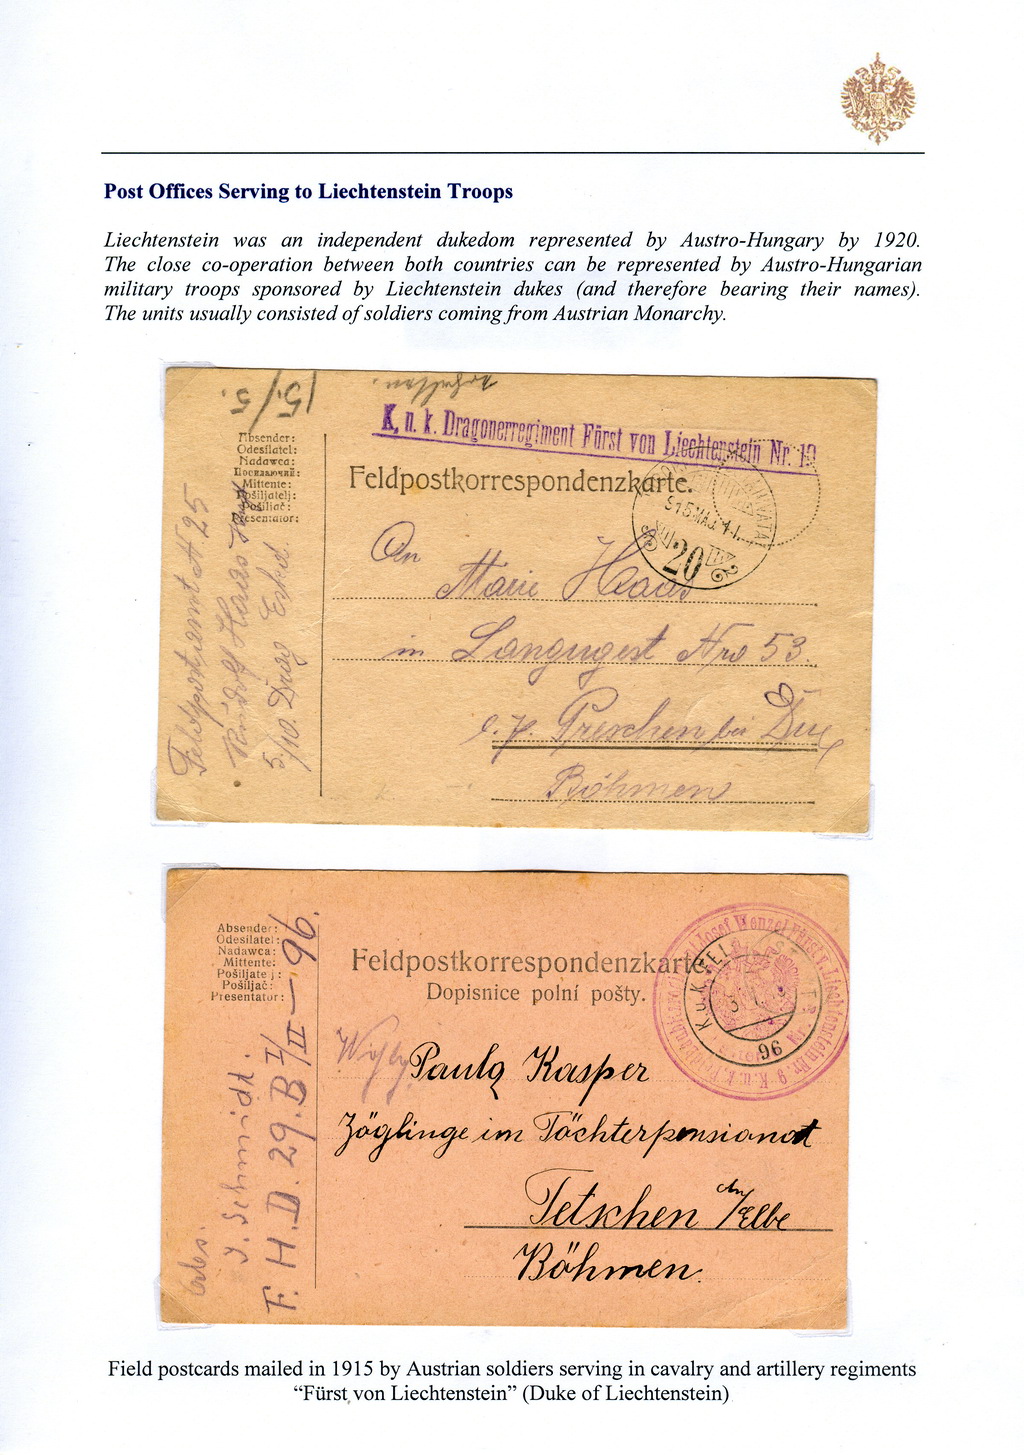 Post Offices Serving to Liechtenstein Troops
Liechtenstein was an independent dukedom represented by Austro-Hungary by 1920.
The close co-operation between both countries can be represented by Austro-Hungarian
military troops sponsored by Liechtenstein dukes (and therefore bearing their names).
The units usually consisted of soldiers coming from Austrian Monarchy.
15./5.
K. u. k. Dragonerregiment Fürst von Liechtenstein Nr. 10
Absender:
Odesílatel:
Nadawca:
Посилаючий:
Mittente:
Pošiljatelj:
Pošiljač:
Presentator:
Feldpostkorrespondenzkarte.
915 MAJ.
20
Feldpostamt No 25
Rudolf Haas
5./10. Drag
An
Marie Haas
in Langugest Nro 53.
Preschen bei Dux
Böhmen
Absender:
Odesílatel:
Nadawca:
Mittente:
Pošiljatelj:
Pošiljač:
Presentator:
Feldpostkorrespondenzkarte.
Dopisnice polní pošty.
Josef Wenzel Fürst v. Liechtenstein Nr. 9 K. u. k.
K.u.K. FELDPOSTAMT
96
J. Schmidt.
F. H. D. 29. B I/II — 96.
Paula Kasper
Zöglinge im Töchterpensionat
Tetschen a/Elbe
Böhmen.
Field postcards mailed in 1915 by Austrian soldiers serving in cavalry and artillery regiments
“Fürst von Liechtenstein” (Duke of Liechtenstein)